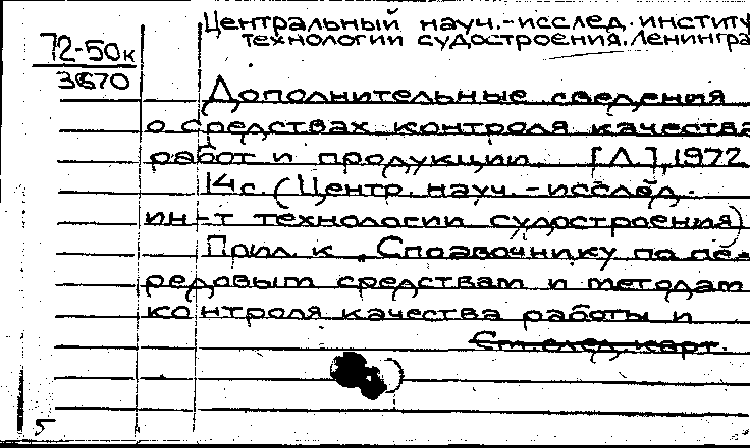 Центральный науч.-исслед. институ
технологии судостроения. Ленингра
72-50к
3670
Дополнительные сведения
о средствах контроля качества
работ и продукции. [Л.], 1972
14 с. (Центр. науч. - исслед.
ин-т технологии судостроения)
Прил. к „Справочнику по пе-
редовым средствам и методам
контроля качества работы и
См. след. карт.
5